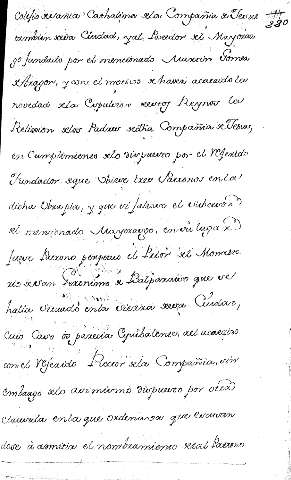 Colegio de Santa Cathalina de la Compañia de Jesus
tambien de esta Ciudad, y al Poseedor del Mayoraz-
go fundado por el mencionado Gomez
de Aragon, y con el motivo de haver acaecido la
novedad de la Expulsion de estos Reynos los
Religiosos de los Padres de dicha Compañia de Jesus,
en Cumplimiento de lo dispuesto por el referido
Fundador de que obiese tres Patronos en la
dicha Obra pia, y que si faltase el
el mencionado Mayorazgo, en su lugar
fuese Patrono perpetuo el Prior del Monaste-
rio de San Geronimo de Balparaiso que se
halla situado en la Sierra de esta Ciudad,
cuio Caso parecia equibalente al acaecido
con el referido Rector de la Compañia, sin
embargo de lo asi mismo dispuesto por otra
clausula en la que ordenava que
dose a admitir el nombramiento de tal Patrono